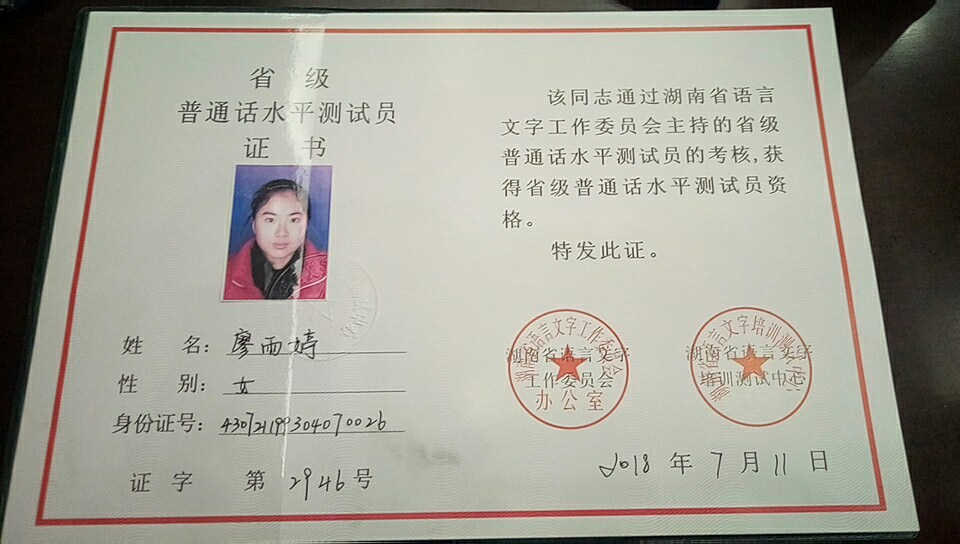 省 级
普通话水平测试员
证 书
姓 名: 廖雨婷
性 别: 女
身份证号: 430721199304070026
证 字 第 2946 号
该同志通过湖南省语言
文字工作委员会主持的省级
普通话水平测试员的考核,获
得省级普通话水平测试员资
格。
特发此证。
湖南省语言文字
工作委员会
办公室
湖南省语言文字
培训测试中心
2018 年 7 月 11 日